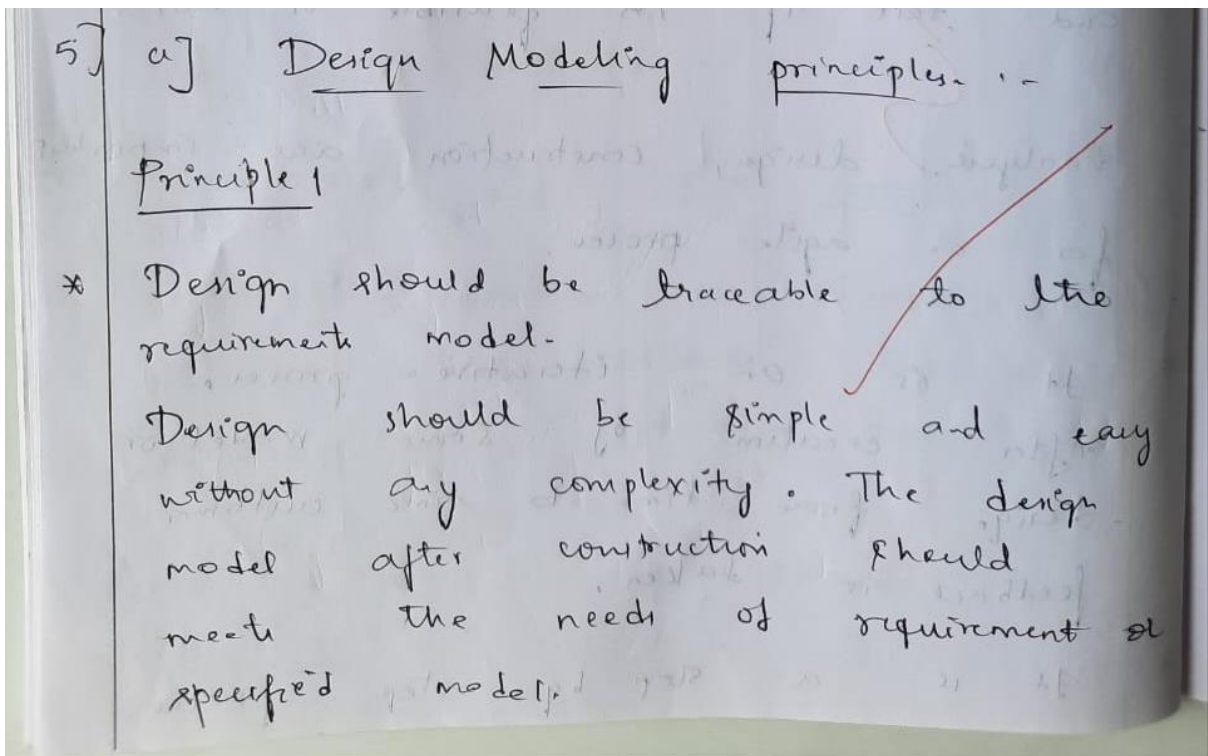 5] a] Design Modeling principles. :-
Principle 1
* Design should be traceable to the
requirements model.
Design should be simple and easy
without any complexity. The design
model after construction should
meets the needs of requirement or
specified model.